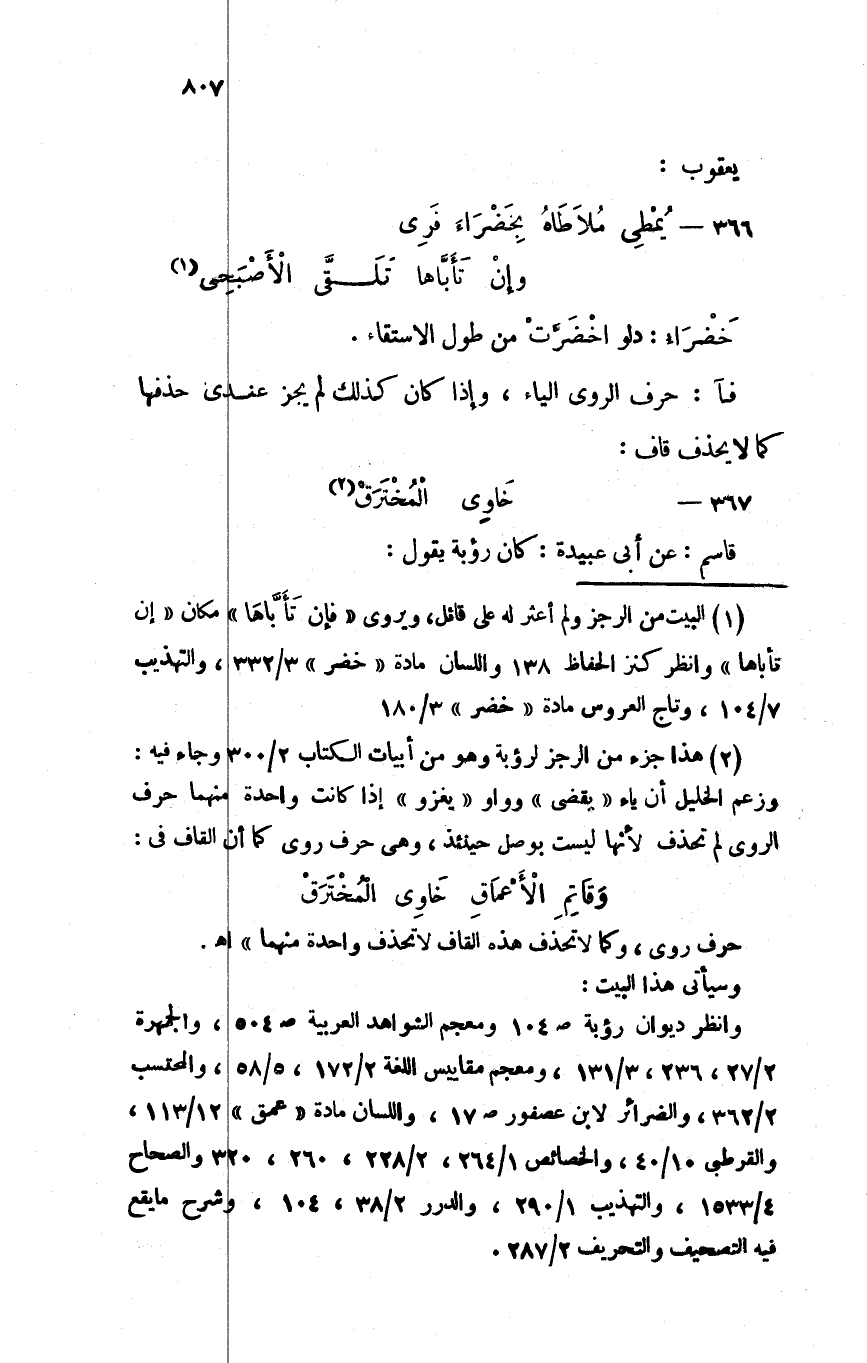 ٨٠٧
يعقوب :
٣٦٦ — يُمْطِى مُلاَطَاهُ بِخَضْرَاءَ فَرِى
وإنْ تَأَبَّاها تَلَـــقَّى الْأَصْبَحِى(١)
خَضْرَاء : دلو اخْضَرَّتْ من طول الاستقاء .
فـآ : حرف الروى الياء ، وإذا كان كذلك لم يجز عنـدى حذفها
كما لا يحذف قاف :
٣٦٧ — خَاوِى الْمُخْتَرَقْ(٢)
قاسم : عن أبى عبيدة : كان رؤبة يقول :
(١) البيت من الرجز ولم أعثر له على قائل، ويروى « فإن تَأَبَّاهَا » مكان « إن
تأباها » وانظر كنز الحفاظ ١٣٨ واللسان مادة « خضر » ٣٣٢/٣ ، والتهذيب
١٠٤/٧ ، وتاج العروس مادة « خضر » ١٨٠/٣
(٢) هذا جزء من الرجز لرؤبة وهو من أبيات الكتاب ٣٠٠/٢ وجاء فيه :
وزعم الخليل أن ياء « يقضى » وواو « يغزو » إذا كانت واحدة منهما حرف
الروى لم تحذف لأنها ليست بوصل حينئذ ، وهى حرف روى كما أن القاف فى :
وَقَاتِمِ الْأَعْمَاقِ خَاوِى الْمُخْتَرَقْ
حرف روى ، وكما لا تحذف هذه القاف لا تحذف واحدة منهما » اهـ .
وسيأتى هذا البيت :
وانظر ديوان رؤبة صـ ١٠٤ ومعجم الشواهد العربية صـ ٥٠٤ ، والجمهرة
٢٧/٢ ، ٢٣٦ ، ١٣١/٣ ، ومعجم مقاييس اللغة ١٧٢/٢ ، ٥٨/٥ ، والمحتسب
٣٦٢/٢ ، والضرائر لابن عصفور صـ ١٧ ، واللسان مادة « عمق » ١١٣/١٢ ،
والقرطبى ٤٠/١٠ ، والخصائص ٢٦٤/١ ، ٢٢٨/٢ ، ٢٦٠ ، ٣٢٠ والصحاح
١٥٣٣/٤ ، والتهذيب ٢٩٠/١ ، والدرر ٣٨/٢ ، ١٠٤ ، وشرح مايقع
فيه التصحيف والتحريف ٢٨٧/٢ .